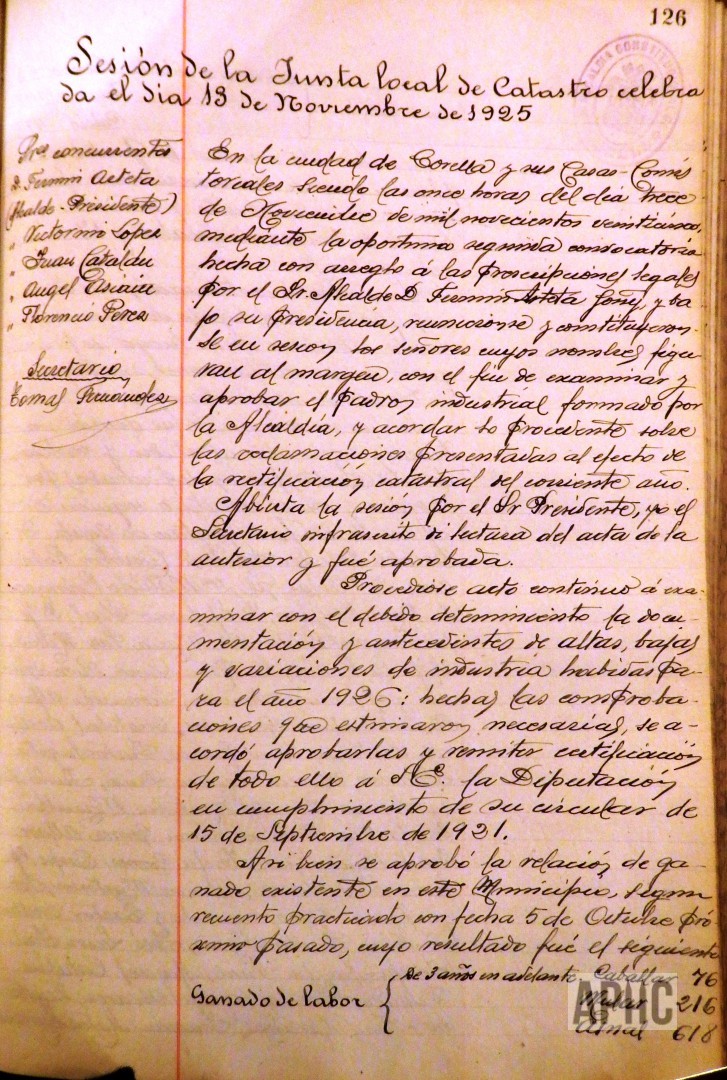 126
Sesión de la Junta local de Catastro celebra
da el dia 13 de Noviembre de 1925
Sres. concurrentes
D. Fermin Arteta
(Alcalde-Presidente)
" Victorino Lopez
" Juan Cataldu
" Angel
" Florencio Perez
Secretario
Tomas Fernandez
En la ciudad de Corella y sus Casas-Consis
toriales siendo las once horas del dia trece
de Noviembre de mil novecientos veinticinco,
mediante la oportuna segunda convocatoria
hecha con arreglo á las proscripciones legales
por el Sr. Alcalde D. Fermin Arteta y ba-
jo su presidencia, reunieronse y constituyeron-
se en sesion los señores cuyos nombres figu-
ran al margen, con el fin de examinar y
aprobar el padron industrial formado por
la Alcaldia, y acordar lo procedente sobre
las reclamaciones presentadas al efecto de
la rectificación catastral del corriente año.
Abierta la sesión por el Sr. Presidente, yo el
Secretario infrascrito di lectura del acta de la
anterior y fué aprobada.
Procediose acto continuo á exa-
minar con el debido detenimiento la docu-
mentación y antecedentes de altas, bajas
y variaciones de industria habidas pa-
ra el año 1926: hechas las comproba-
ciones que estimaron necesarias, se a-
cordó aprobarlas y remitir certificación
de todo ello á S.E. la Diputación
en cumplimiento de su circular de
15 de Septiembre de 1921.
Asi bien se aprobó la relación de ga-
nado existente en este Municipio, segun
recuento practicado con fecha 5 de Octubre pró
ximo pasado, cuyo resultado fué el siguiente
Ganado de labor { De 3 años en adelante Caballar 76
Mular 216
Asnal 618
APHC